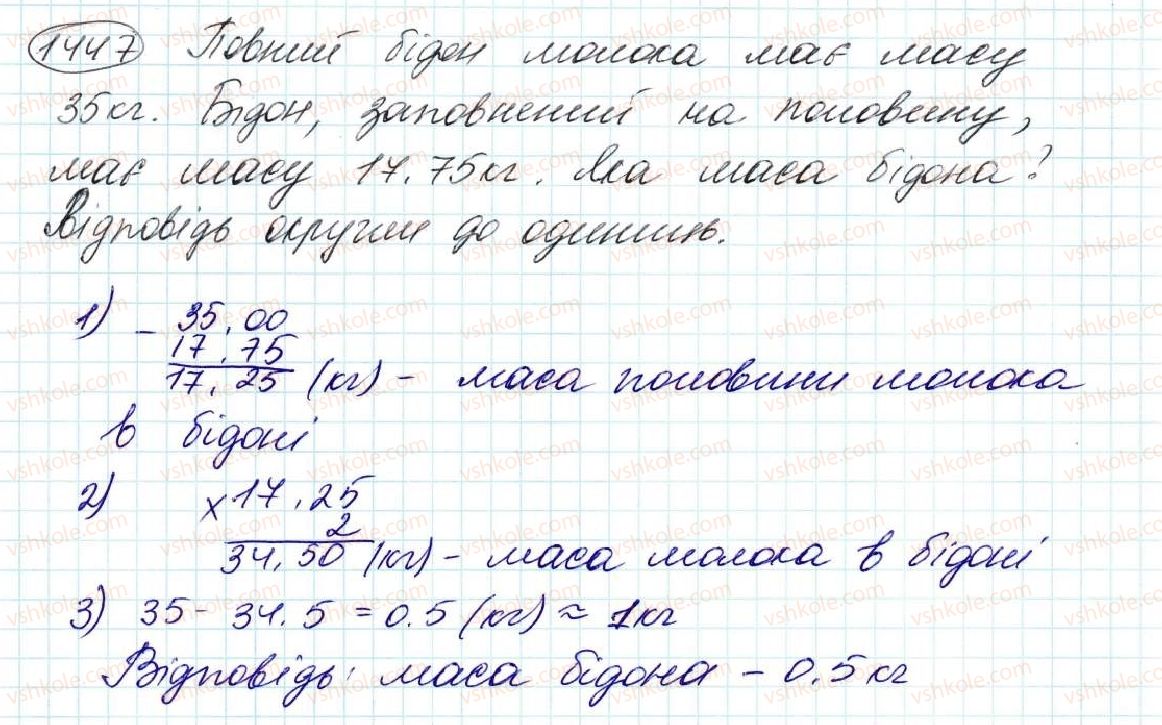 1447 Повний бідон молока має масу
35кг. Бідон, заповнений на половину,
має масу 17.75кг. Яка маса бідона?
Відповідь округли до одиниць.
1) - 35.00
17.75
17.25 (кг) - маса половини молока
в бідоні
2) х 17.25
2
34.50 (кг) - маса молока в бідоні
3) 35 - 34.5 = 0.5 (кг) ≈ 1кг
Відповідь: маса бідона - 0.5 кг